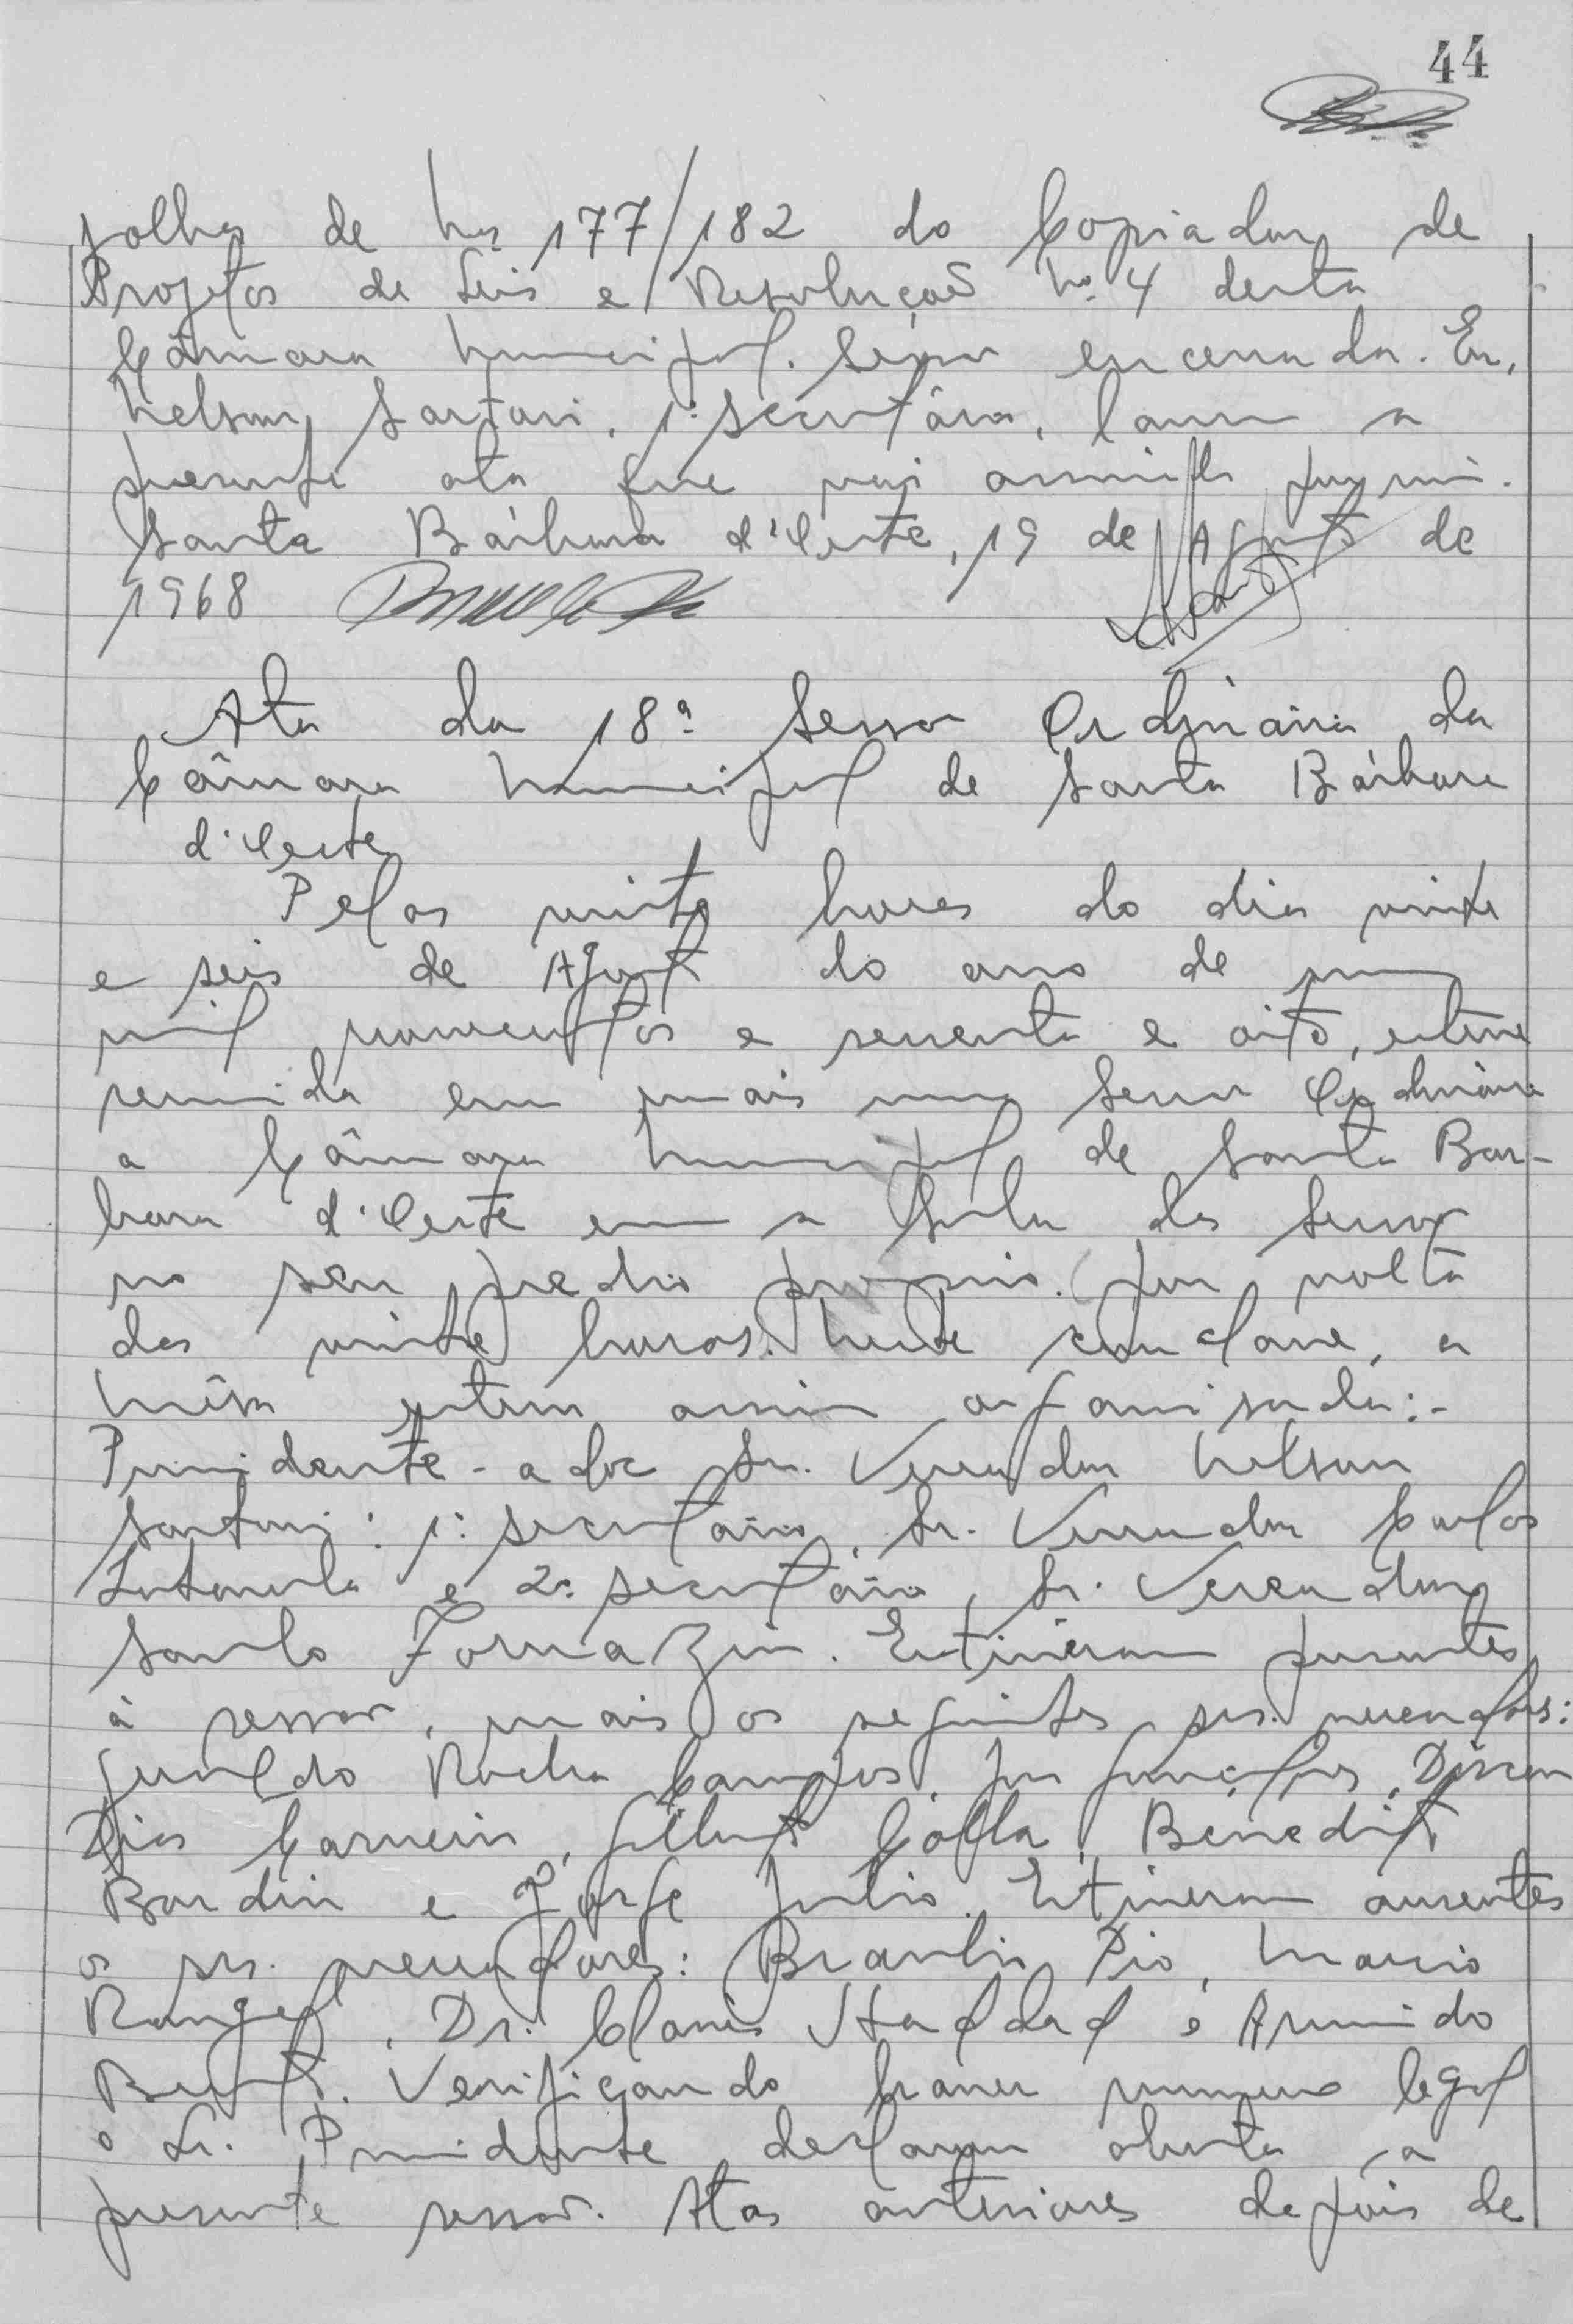 44
folhas de nos 177/182 do Copiador de
Projetos de Leis e Resoluções no. 4 desta
Câmara Municipal. Sessão encerrada. Eu,
Nelson Sartori, 1º secretário, lavrei a
presente ata que vai assinada por mim.
Santa Bárbara d'Oeste, 19 de Agosto de
1968
Ata da 18ª Sessão Ordinária da
Câmara Municipal de Santa Bárbara
d'Oeste
Pelas vinte horas do dia vinte
e seis de Agosto do ano de um
mil novecentos e sessenta e oito, esteve
reunida em mais uma Sessão Ordinária
a Câmara Municipal de Santa Bár-
bara d'Oeste em a Sala das Sessões
no seu predio proprio. por volta
das vinte horas. Neste conclave, a
Mêsa esteve assim organisada:-
Presidente - adoc Sr. Vereador Nelson
Sartori: 1º secretário, Sr. Vereador Carlos
e 2º secretário, Sr. Vereador
Santo Fornazin. Estiveram presentes
à sessão, mais os seguintes srs. vereadores:
Geraldo Rocha Campos, Dirceu
Dias Carneiro, Benedito
Bardin e Jorge Julio. Estiveram ausentes
os srs. vereadores: Braulio Pio, Marcio
Rangel, Dr. Clovis Haddad e Armindo
Verificando haver numero legal
o Sr. Presidente declarou aberta a
presente sessão. Atas anteriores depois de